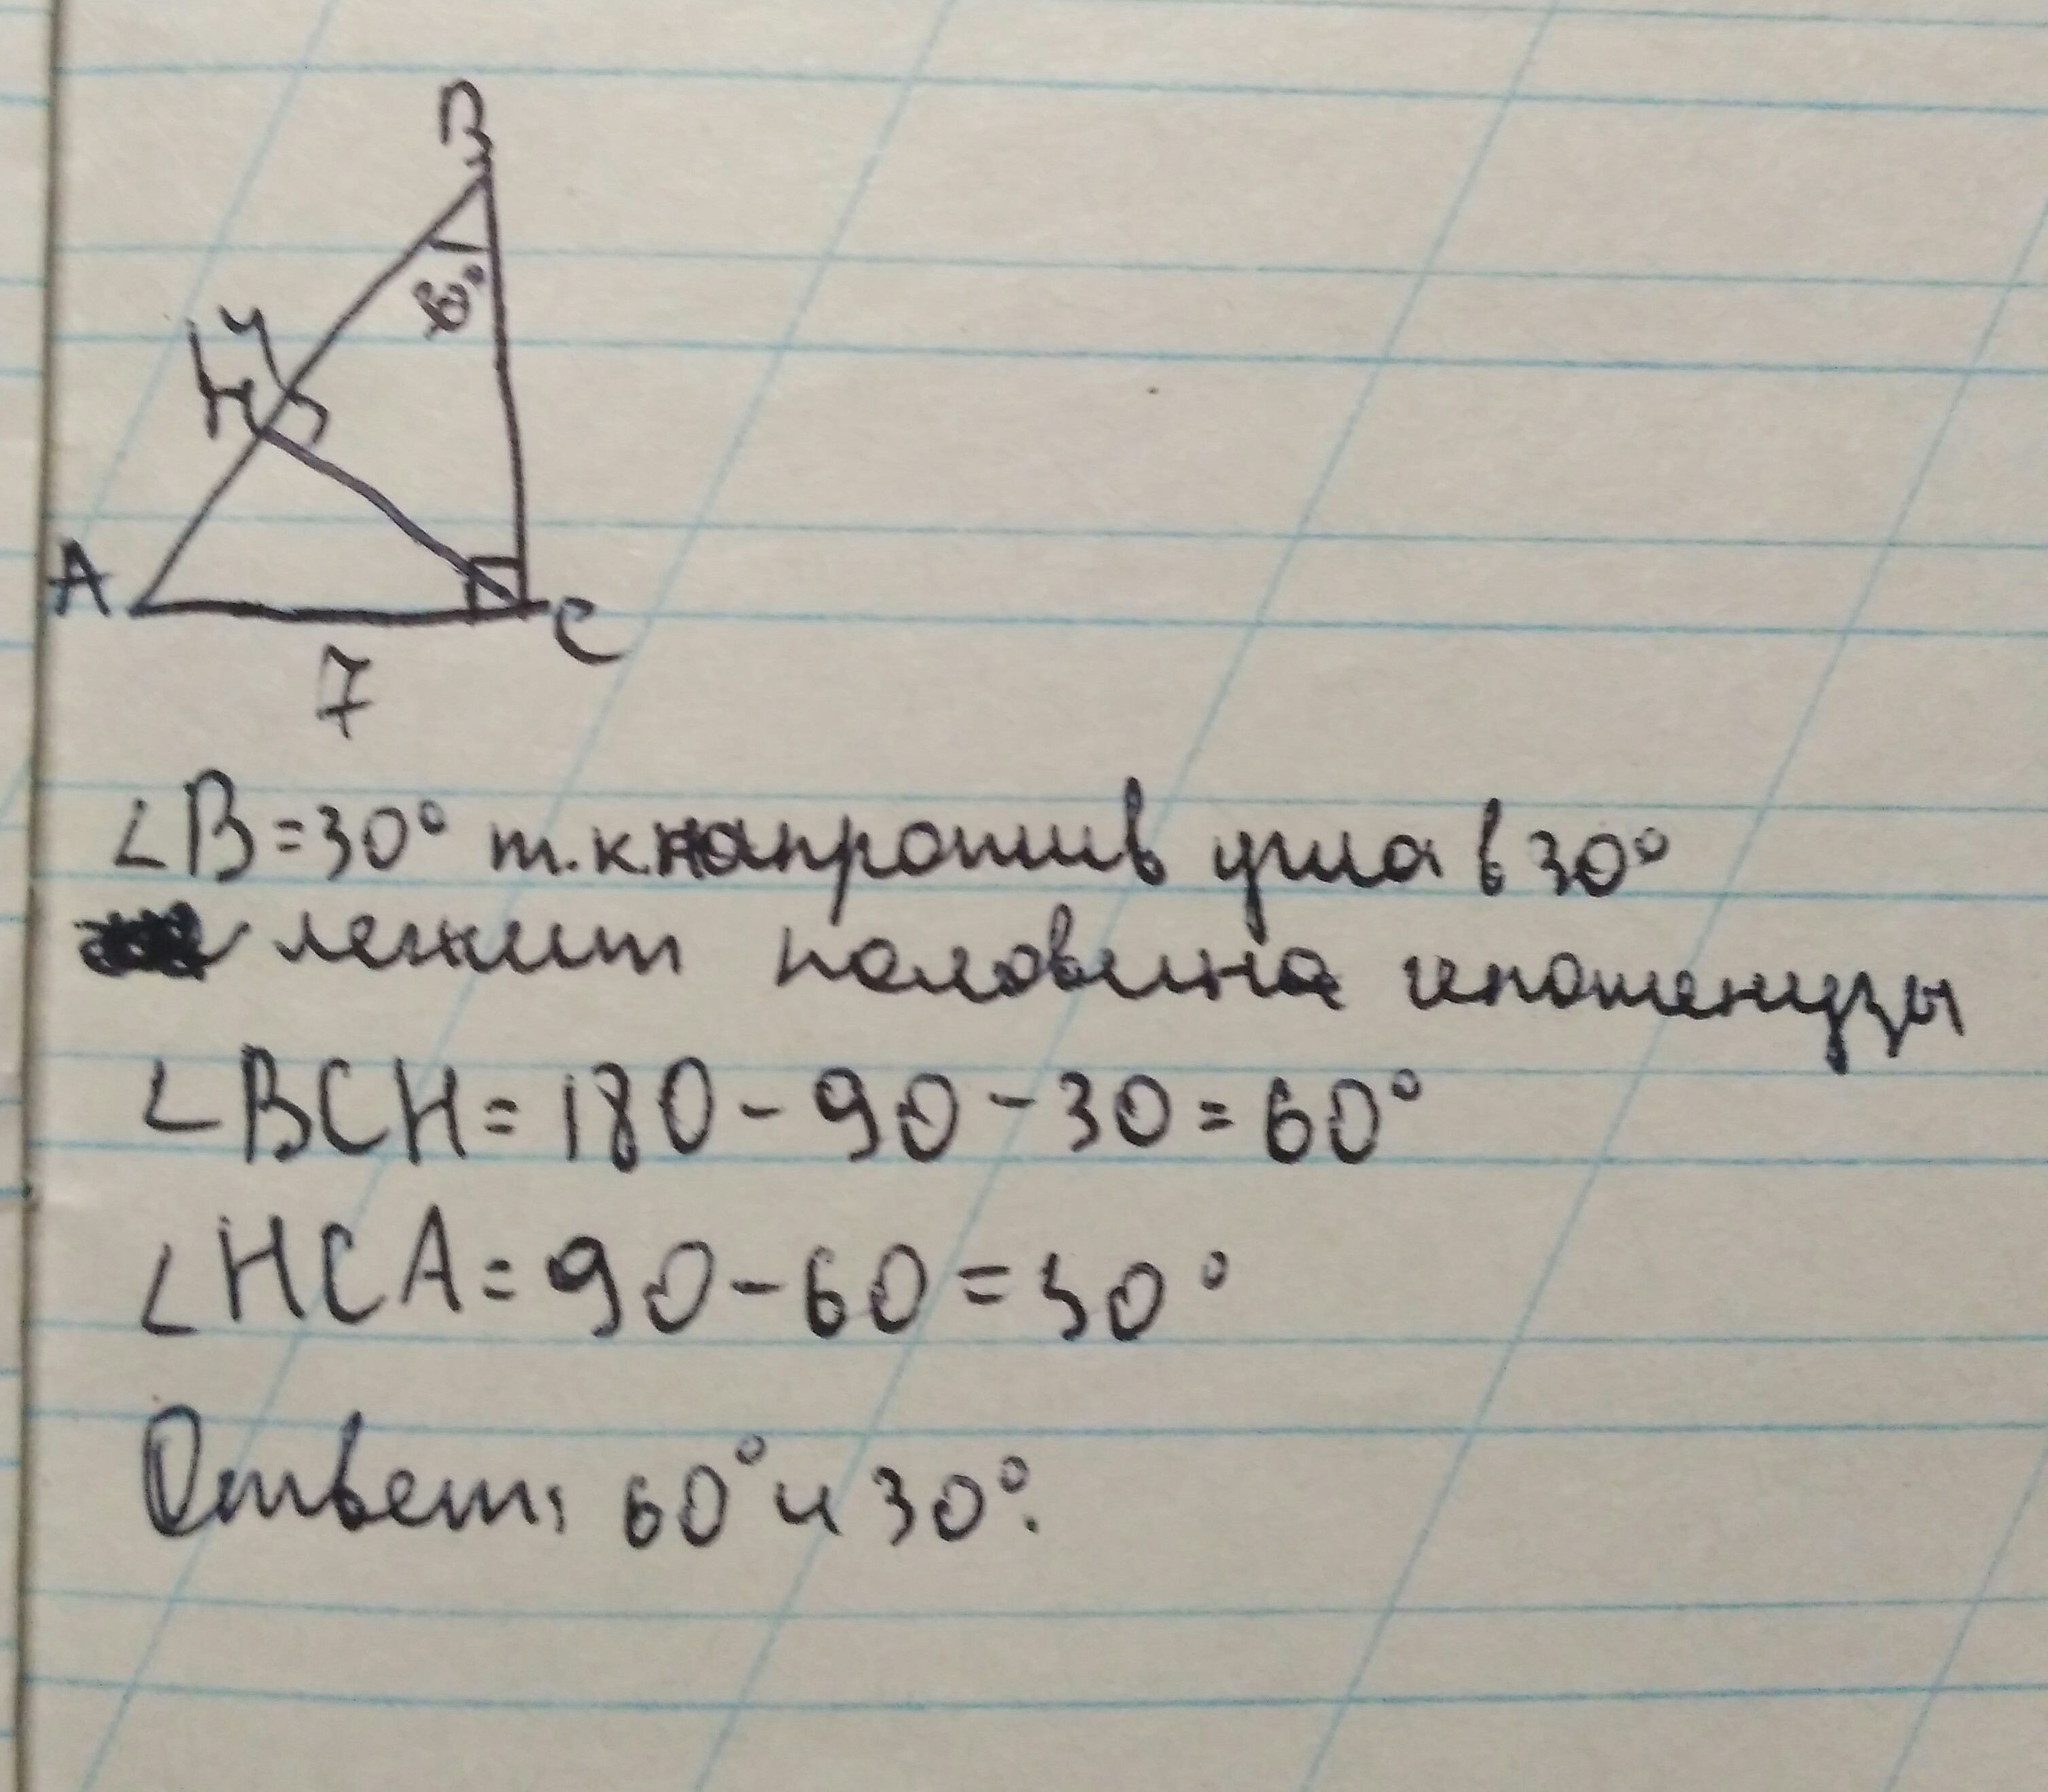 B
30°
14
H
A
C
7
∠B=30° т.к напротив угла в 30°
лежит половина гипотенузы
∠BCH=180-90-30=60°
∠HCA=90-60=30°
Ответ: 60° и 30°.